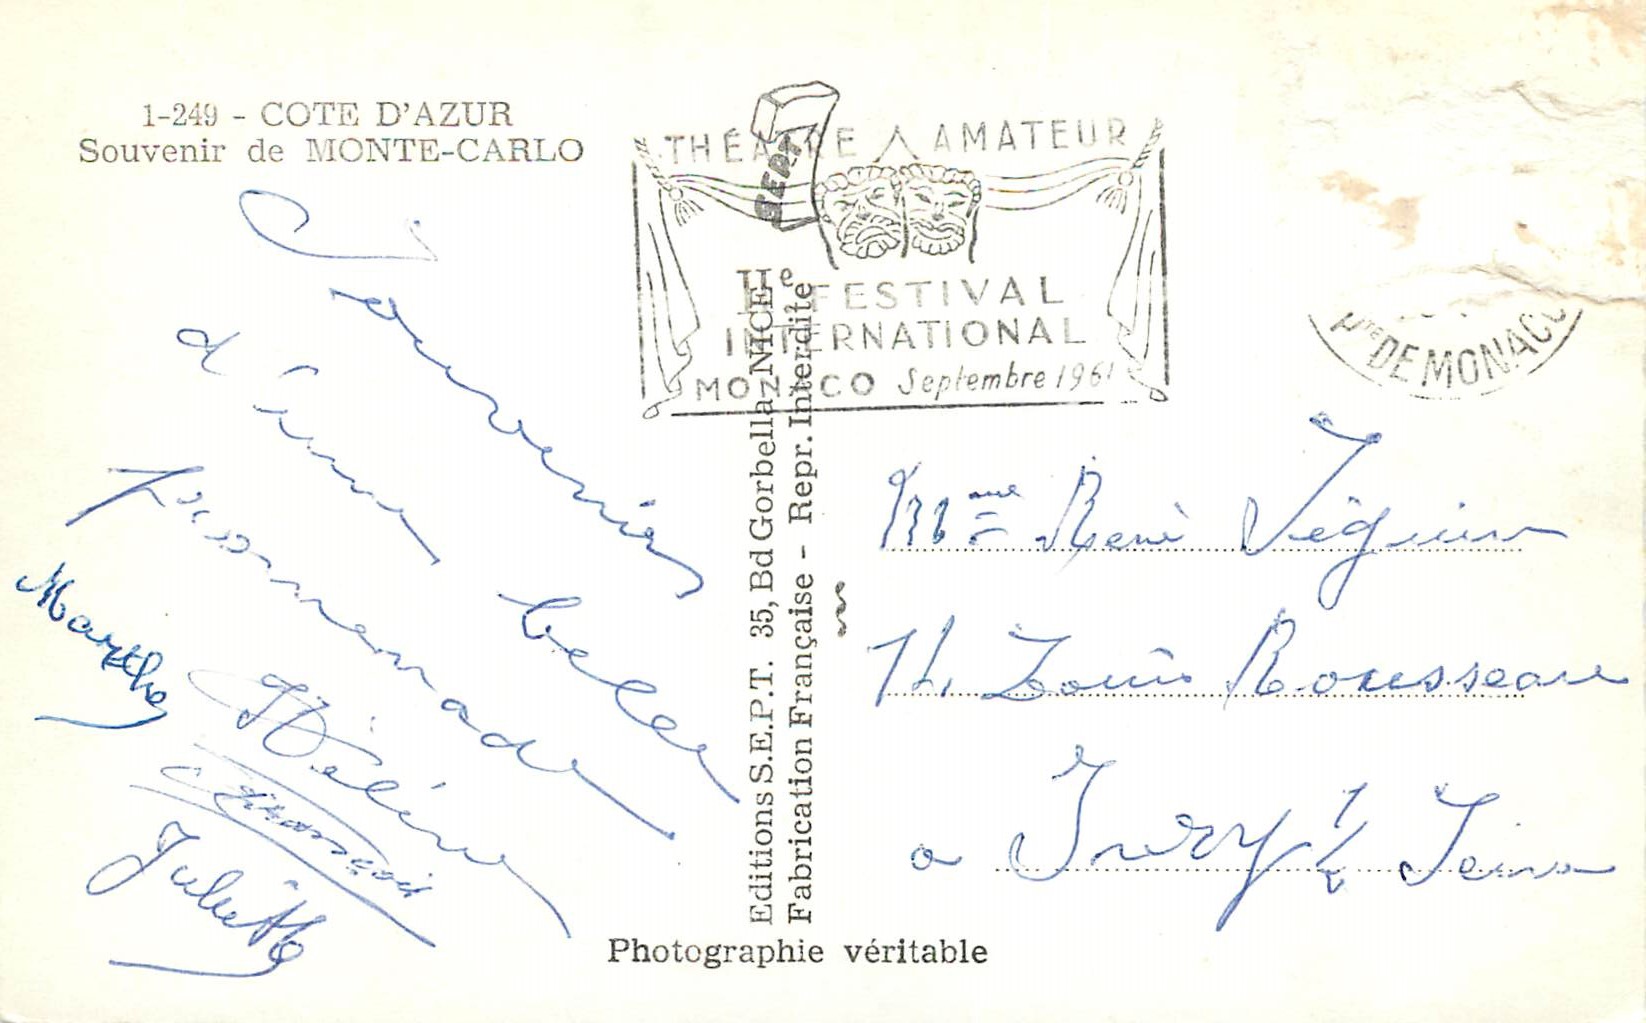 1-249 - COTE D'AZUR
Souvenir de MONTE-CARLO
Souvenir
d'une belle
promenade
Marthe
Hélène
François
Juliette
THÉATRE AMATEUR
IIe FESTIVAL
INTERNATIONAL
MONACO Septembre 1961
Pté DE MONACO
SEPT
Editions S.E.P.T. 35, Bd Gorbella-NICE
Fabrication Française - Repr. Interdite
Mme René
Louis Rousseau
a Ivry s/ Seine
Photographie véritable